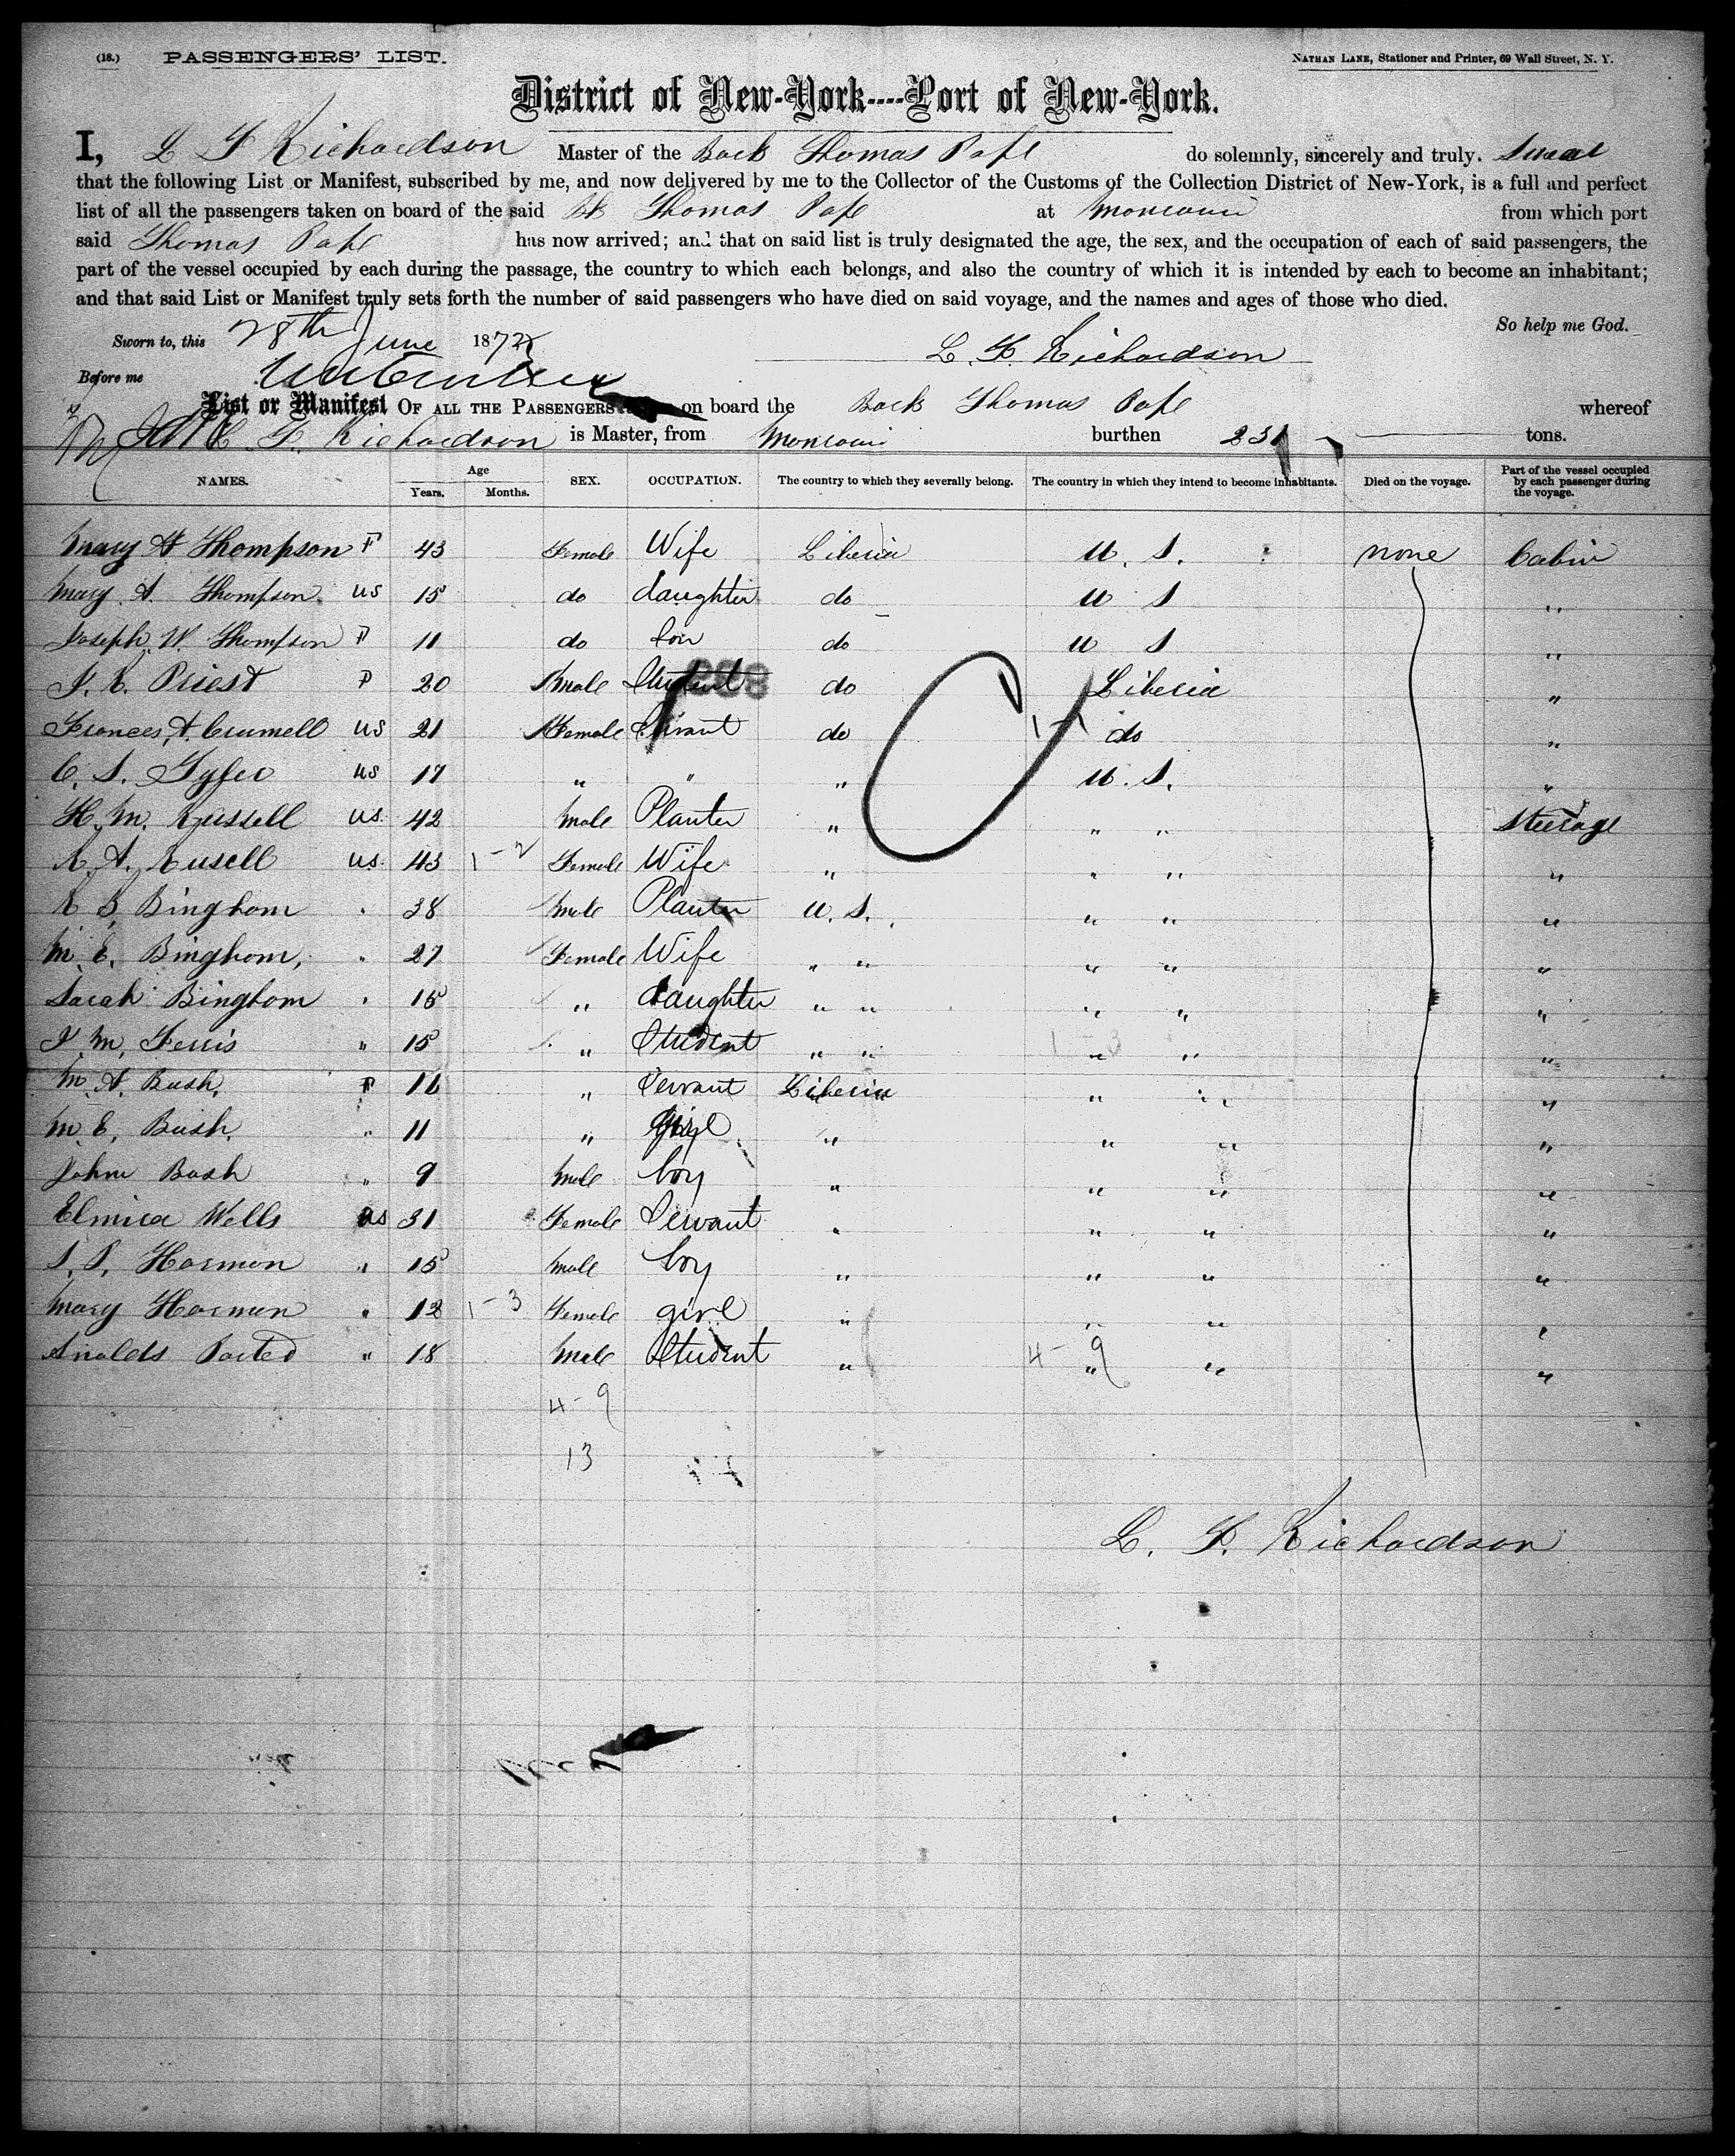 (18.) PASSENGERS' LIST. NATHAN LANE, Stationer and Printer, 69 Wall Street, N. Y.
District of New-York----Port of New-York.
I, L F Richardson Master of the Bark Thomas Pope do solemnly, sincerely and truly. Swear
that the following List or Manifest, subscribed by me, and now delivered by me to the Collector of the Customs of the Collection District of New-York, is a full and perfect
list of all the passengers taken on board of the said Bk Thomas Pope at Monrovia from which port
said Thomas Pope has now arrived; and that on said list is truly designated the age, the sex, and the occupation of each of said passengers, the
part of the vessel occupied by each during the passage, the country to which each belongs, and also the country of which it is intended by each to become an inhabitant;
and that said List or Manifest truly sets forth the number of said passengers who have died on said voyage, and the names and ages of those who died.
So help me God.
Sworn to, this 28th June 1872 L. F. Richardson
Before me
List or Manifest OF ALL THE PASSENGERS on board the Bark Thomas Pope whereof
L. F. Richardson is Master, from Monrovia burthen 231 tons.
NAMES. Age Years. Months. SEX. OCCUPATION. The country to which they severally belong. The country in which they intend to become inhabitants. Died on the voyage. Part of the vessel occupied by each passenger during the voyage.
Mary A Thompson F 43 Female Wife Liberia U. S. none Cabin
Mary A. Thompson US 15 do daughter do U S "
Joseph W. Thompson F 11 do Son do U S "
J. R. Priest F 20 Male Student do Liberia "
Frances A. Crumell US 21 Female Servant do 1-1 do "
C. S. Tyler US 17 " " " U. S. "
H. M. Russell US. 42 Male Planter " " " Steerage
R. A. Rusell US. 43 1-2 Female Wife " " " "
R B Bingham " 38 Male Planter U. S. " " "
M. E. Bingham, " 27 Female Wife " " " " "
Sarah Bingham " 15 " daughter " " " " "
J. M. Ferris " 15 " Student " " 1-3 " " "
M. A. Bush, F 16 " Servant Liberia " " "
M. E. Bush. " 11 " girl " " " "
John Bush " 9 Male boy " " " "
Elmira Wells US 31 Female Servant " " " "
S. S. Harmon " 15 Male boy " " " "
Mary Harmon " 12 1-3 Female girl " " " "
" 18 Male Student " 4-9 " " "
4-9
13
L. F. Richardson